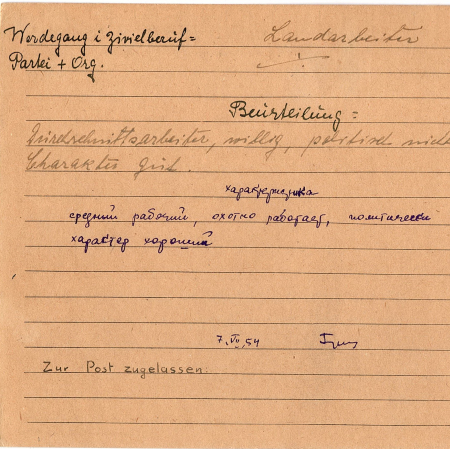 Werdegang i Zivielberuf= Landarbeiter
Partei + Org. 
Beurteilung =
Durchschnittsarbeiter, willig, politisch nicht
Charakter gut.
характеристика
средний рабочий, охотно работает, политически
характер хороший
7. VII. 54
Zur Post zugelassen: